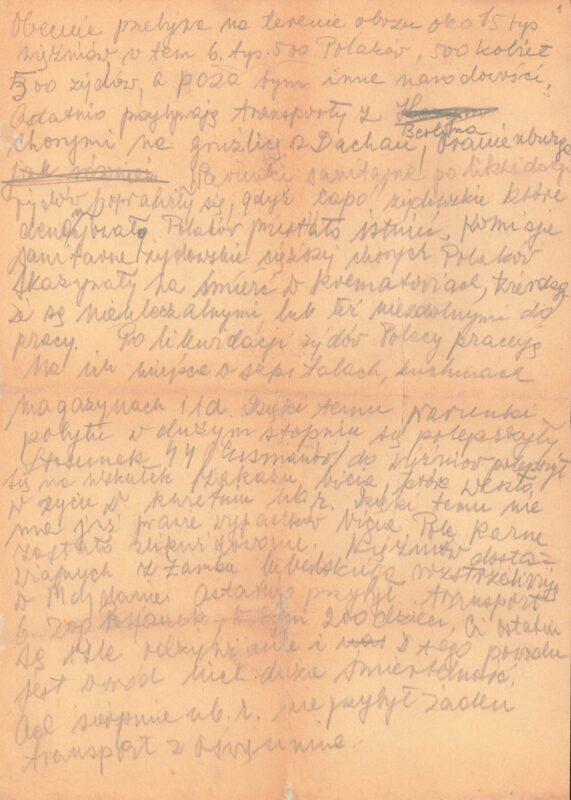 1
Obecnie przebywa na terenie obozu oko 15 tys
więźniów w tem 6. tys. 500 Polaków, 500 kobiet
500 żydów, a poza tym inne narodowości,
Ostatnio przybywają transporty z
chorymi na gruźlicę z Dachau, Berlina, Oranienburga
Warunki sanitarne po likwidacji
żydów poprawiły się, gdyż capo żydowskie które
Polaków przestało istnieć. Komisje
sanitarne żydowskie ciężej chorych Polaków
skazywały na śmierć w krematoriach, twierdząc
że są nieuleczalnymi lub też niezdolnymi do
pracy. Po likwidacji żydów Polacy pracują
na ich miejsce o szpitalach, kuchniach
magazynach itd. Dzięki temu warunki
pobytu w dużym stopniu się polepszyły
Stosunek SS Esmanów do więźniów polepszył
się na wskutek zakazu bicia, weszło
w życie w kwietniu ub. r. Dzięki temu nie
ma już prawie wypadków bicia Pole karne
zostało zlikwidowane. Więźniów dosta-
wianych z Zamku lubelskiego rozstrzeliwują
w Majdanie. Ostatnio przybył transport
6. 200 dzieci, Ci ostatni
są źle odżywianie i z tego powodu
jest wśród nich duża śmiertelność.
Od sierpnia ub. r. nie przybył żaden
transport z Oświęcimia